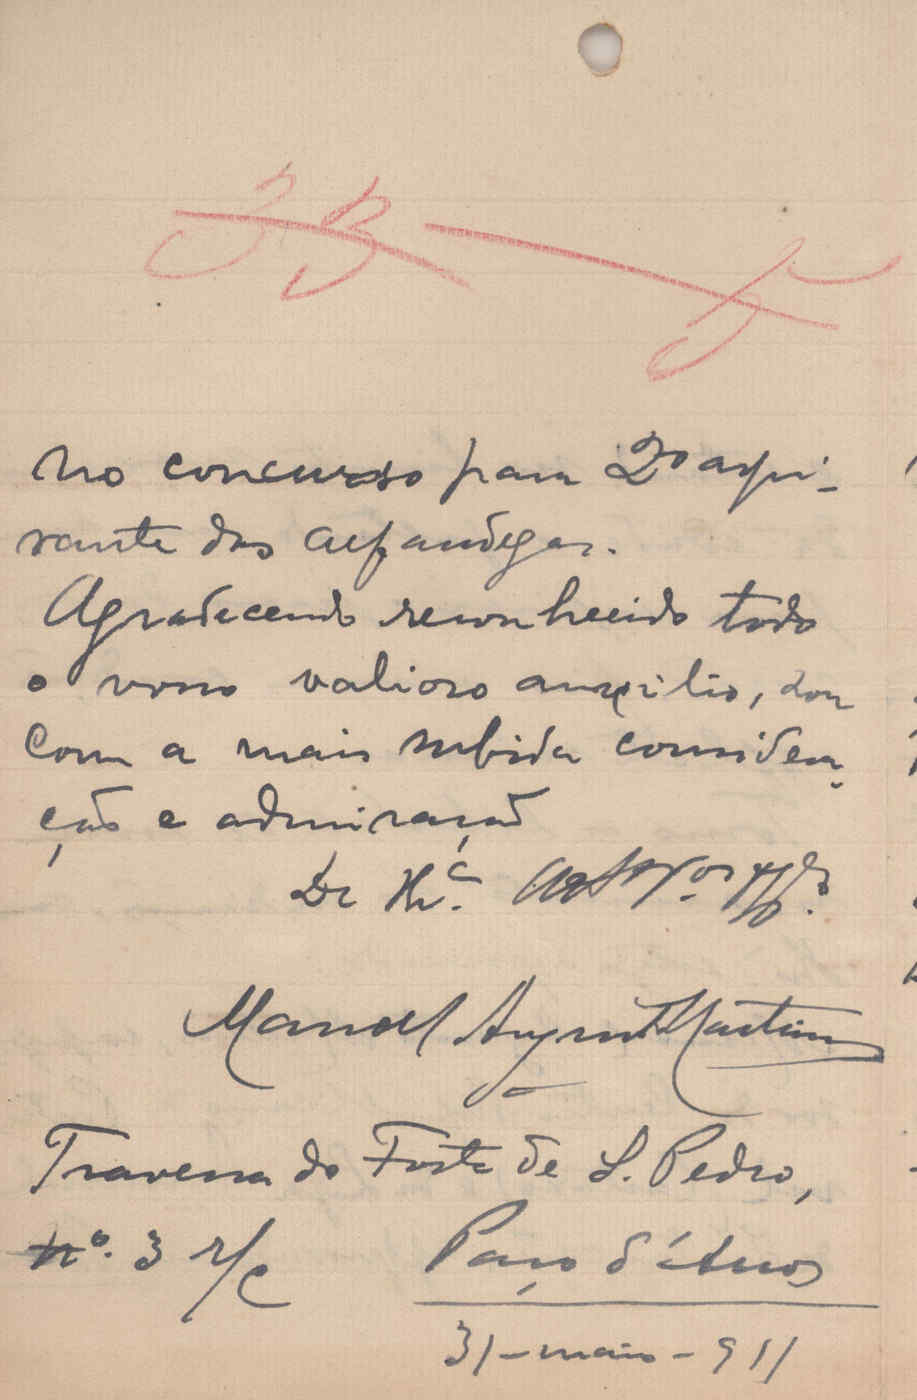 no concurso para 2º aspi-
rante das alfandegas.
Agradecendo reconhecido todo
o vosso valioso auxilio, sou
com a mais subida considera-
ção e admiração
De V. Exc.ª
Manoel Martins
Travessa do Forte de S. Pedro,
nº. 3 r/c Paço d'Arcos
31-maio-911